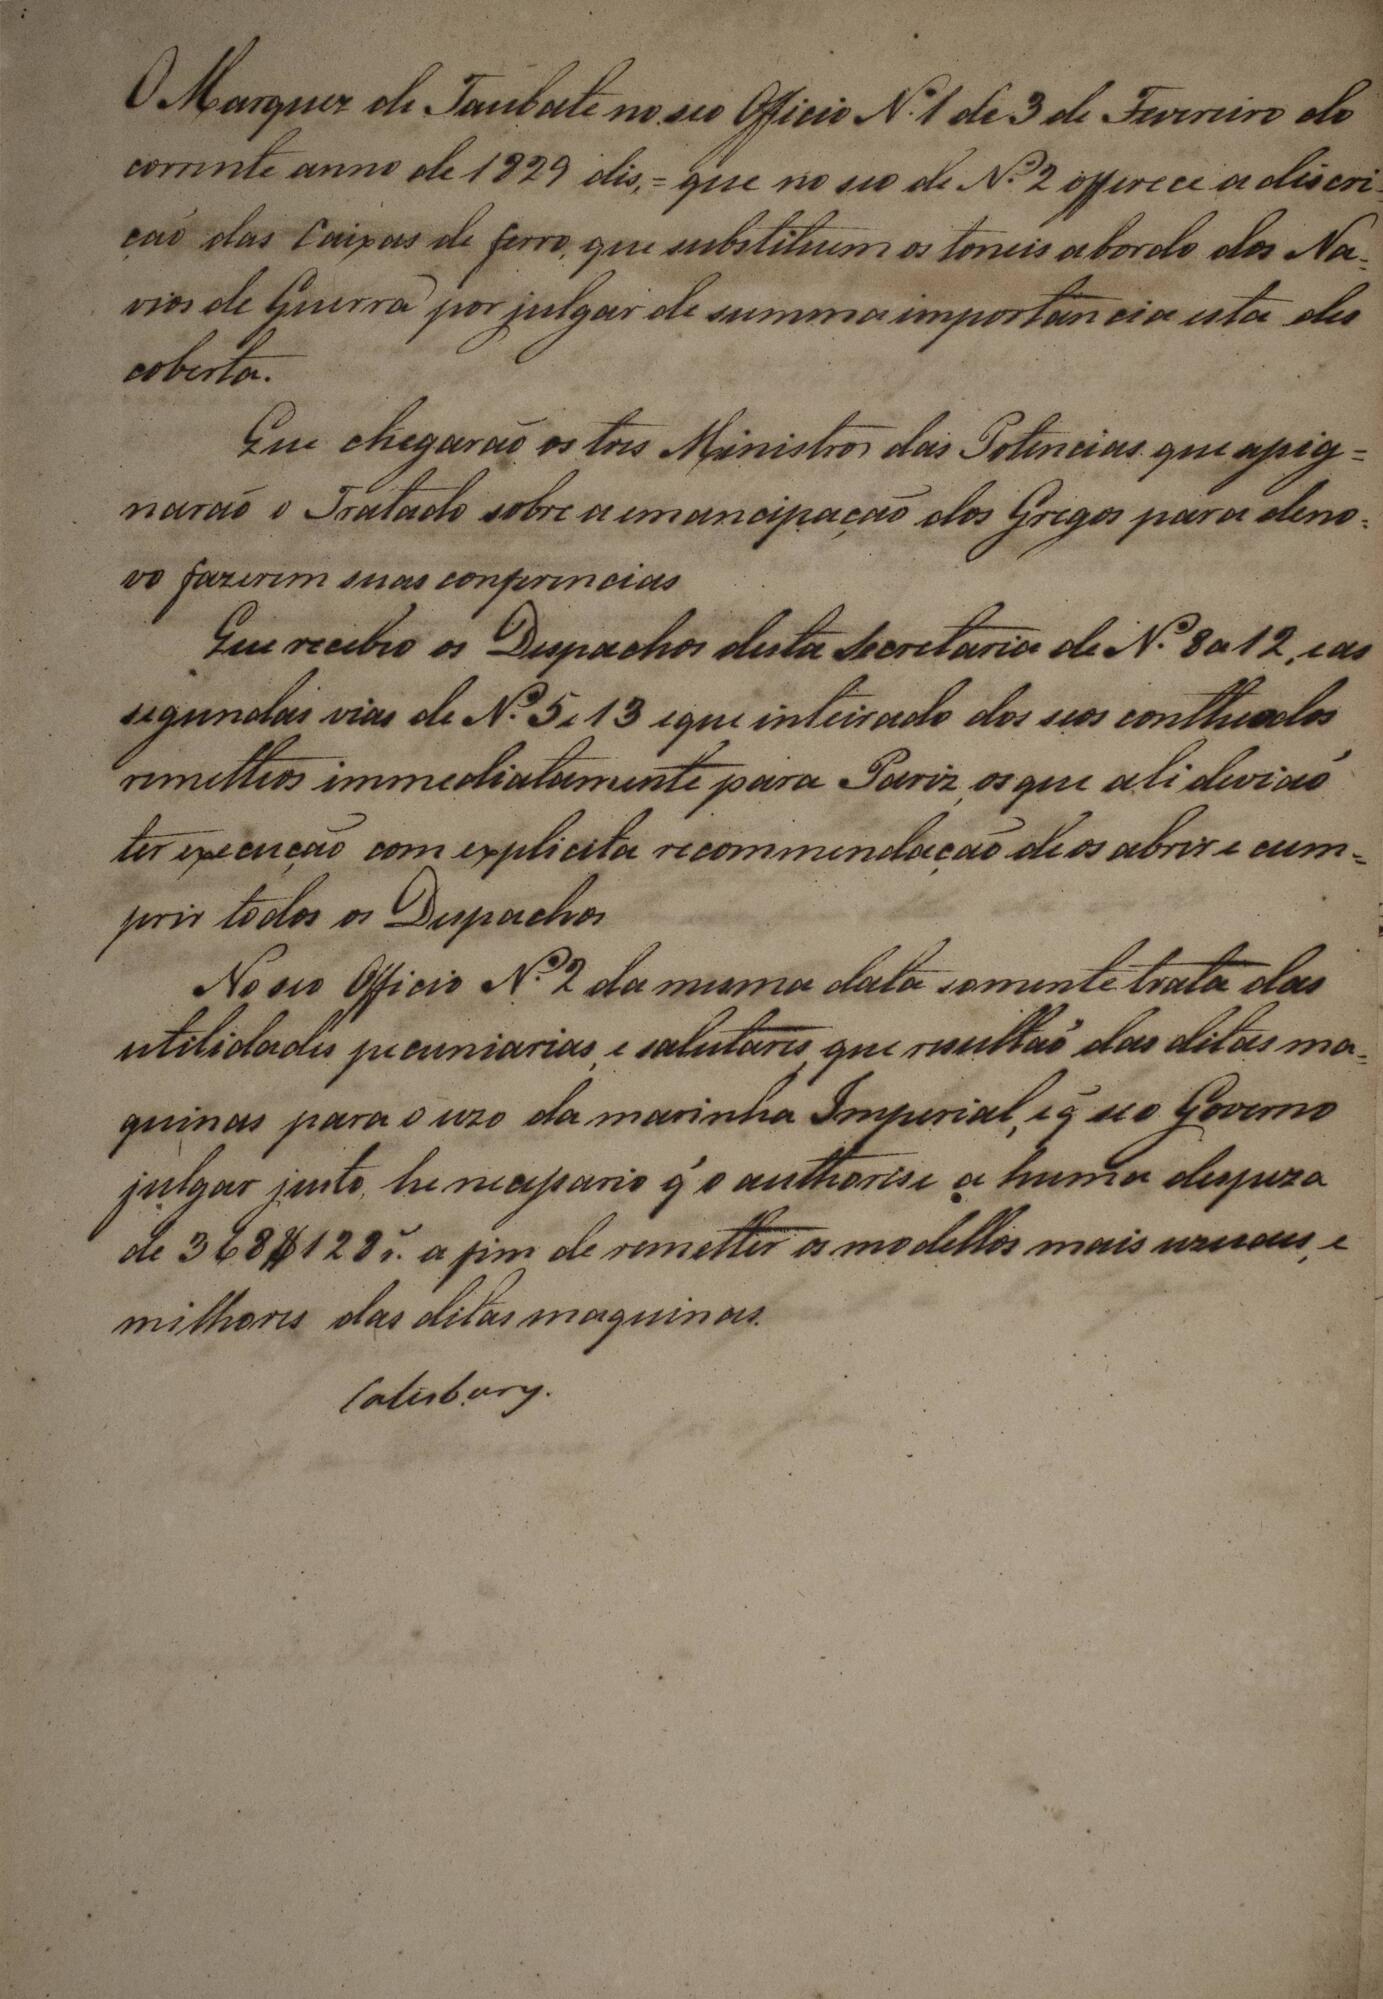 O Marquez de Taubate no seo Officio N.º 1 de 3 de Fevereiro do
corrente anno de 1829 dis, = que no seo de N.º 2 offerece a discri-
ção das Caixas de ferro, que substituem os toneis abordo dos Na-
vios de Guerra por julgar de summa importancia esta des
coberta.
Que chegarão os tres Ministros das Potencias que assig=
narão o Tratado sobre a emancipação dos Gregos para deno-
vo fazerem suas conferencias
Que recebeo os Despachos desta Secretaria de N.º 8 a 12, e as
segundas vias de N.º 5 e 13 e que inteirado dos seos contheodos
remetteos immediatamente para Pariz, os que ali devião
ter execução com explicita recommendação de os abrir e cum-
prir todos os Despachos
No seo Officio N.º 2 da mesma data somente trata das
utilidades pecuniarias, e salutares, que resultão das ditas ma-
quinas para o uzo da marinha Imperial, e q̃ se o Governo
julgar justo, he necessario q̃ o authorise a huma despeza
de 368$128 r. a fim de remetter os modellos mais uzuaes, e
milhores das ditas maquinas.
Calisbury.